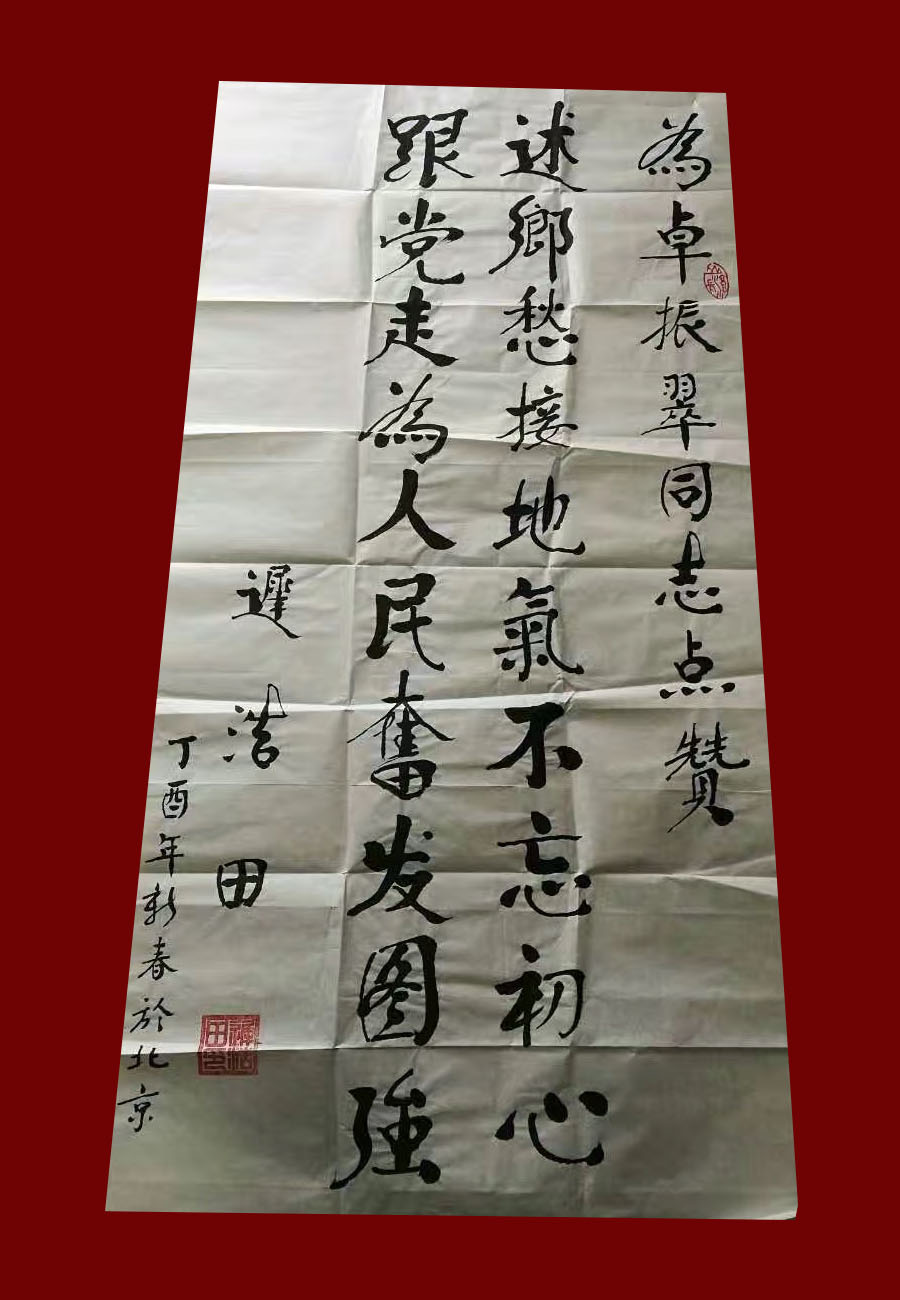 為卓振翠同志点贊
述鄉愁接地氣不忘初心
跟党走為人民奮发图强
遲浩田
丁酉年新春於北京